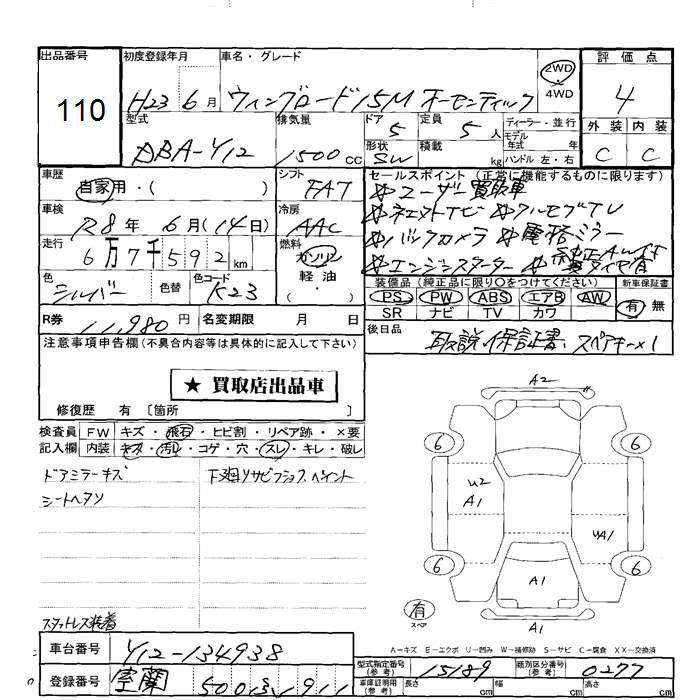 出品番号 初度登録年月 車名・グレード 2WD 評価点
110 H23年6月 ウィングロード 15M オーセンティック ・4WD 4
型式 排気量 ドア 定員 ディーラー・並行 外装 内装
DBA-Y12 1500cc 5 5人 モデル年式 年 C C
形状 積載 ハンドル 左・右
SW kg
車歴 シフト セールスポイント (正常に機能するものに限ります)
自家用・( ) FAT ☆ユーザー買取車
車検 冷房 ☆ネエットTV ☆フルセグTV
R8年6月(14日) AAC ☆バックカメラ ☆電格ミラー
走行 燃料 ☆エンジンスターター
6万7千592km ガソリン・軽油・( )
色 色替 色コード 装備品 (純正品に限り○をつけてください) 新車保証書
シルバー K23 PS PW ABS エアB AW 有・無
SR ナビ TV カワ
R券 11,980円 名変期限 月 日 後日品
取説.保証書.スペアキー×1
注意事項申告欄(不具合内容等は具体的に記入して下さい)
★ 買取店出品車
修復歴 有〔箇所 〕
検査員 FW キズ・飛石・ヒビ割・リペア跡・×要
記入欄 内装 キズ・汚レ・コゲ・穴・スレ・キレ・破レ
ドアミラーキズ 下廻りサビフショク、ペイント
シートヘタリ
A2
6 6
U2
A1
UA1
6 6
A1
有
スペア
A1
スタットレス装着
A-キズ E-エクボ U-凹み W-補修跡 S-サビ C-腐食 XX-交換済
車台番号 Y12-134938
型式指定番号(参考) 15189 類別区分番号(参考) 0277
登録番号 室蘭 500 911
車庫証明用(参考) 長さ cm 幅 cm 高さ cm